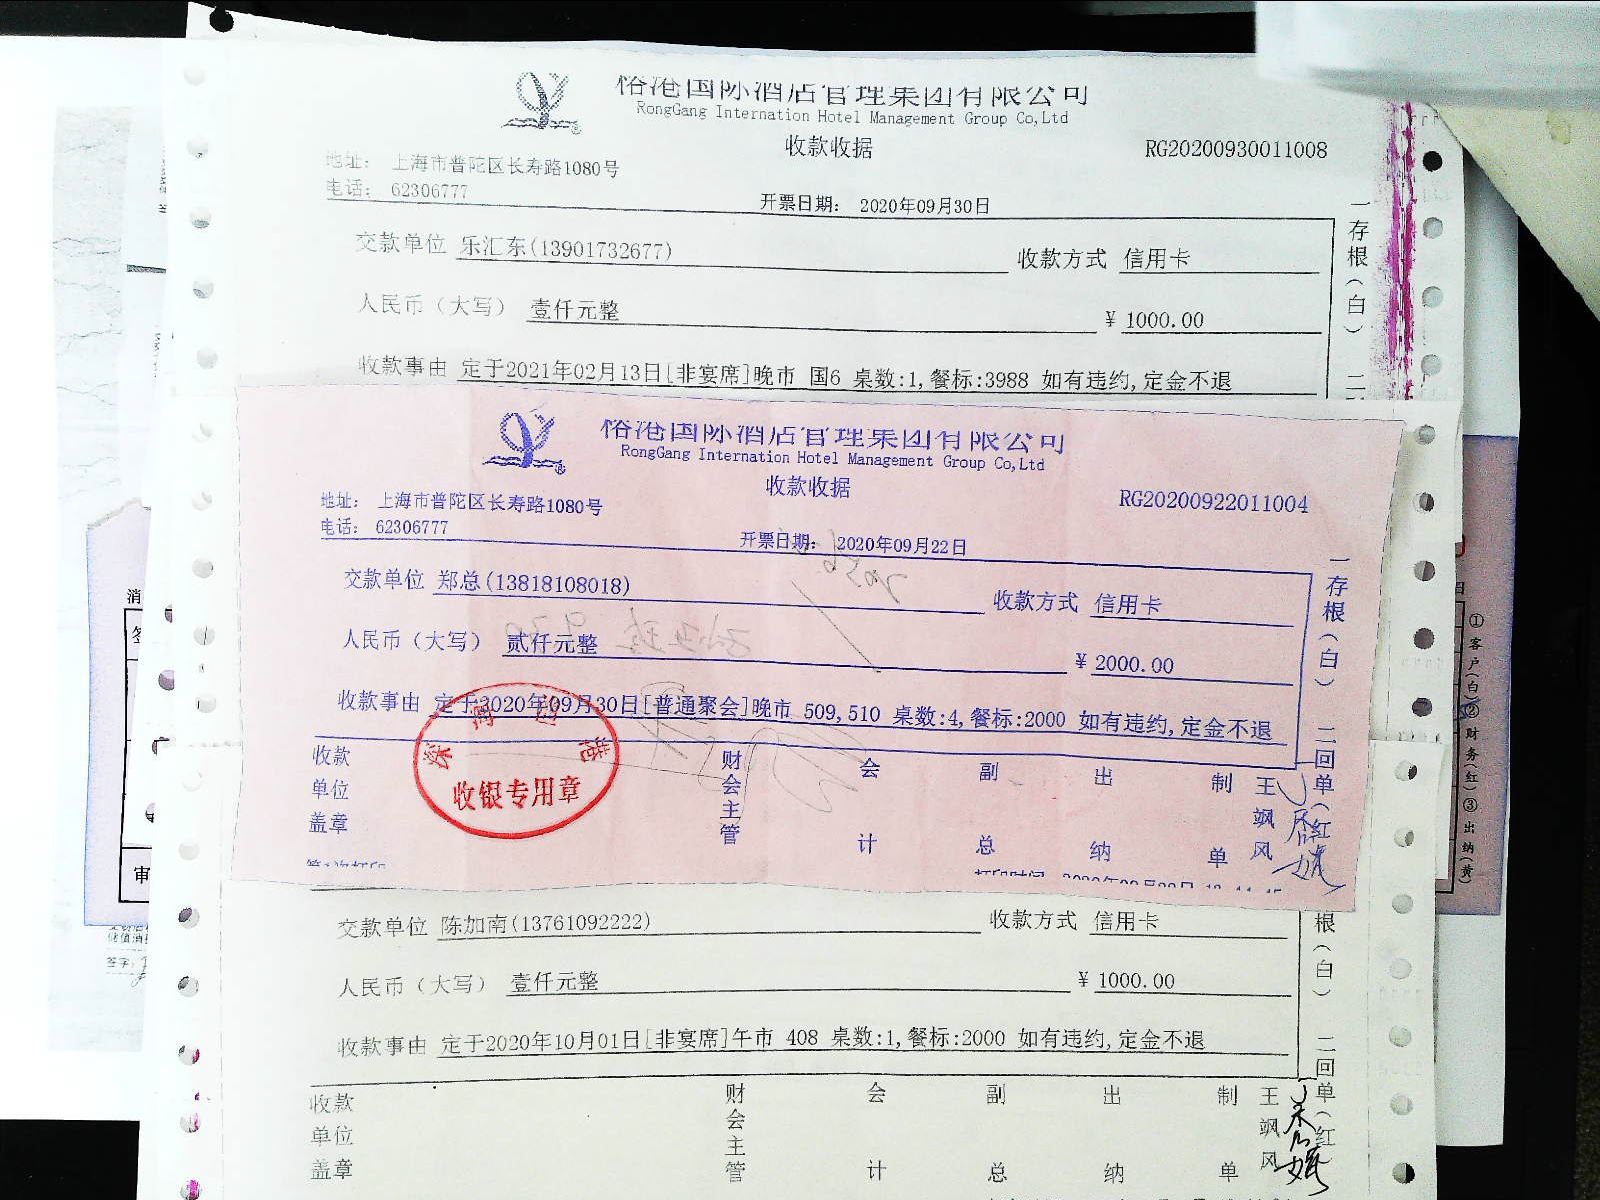 裕港国际酒店管理集团有限公司
RongGang Internation Hotel Management Group Co,Ltd
收款收据
RG20200930011008
地址： 上海市普陀区长寿路1080号
电话： 62306777
开票日期： 2020年09月30日
交款单位 乐汇东(13901732677) 收款方式 信用卡
人民币（大写） 壹仟元整 ¥ 1000.00
收款事由 定于2021年02月13日[非宴席]晚市 国6 桌数:1,餐标:3988 如有违约,定金不退
一存根（白） 二
裕港国际酒店管理集团有限公司
RongGang Internation Hotel Management Group Co,Ltd
收款收据
RG20200922011004
地址： 上海市普陀区长寿路1080号
电话： 62306777
开票日期： 2020年09月22日
交款单位 郑总(13818108018) 收款方式 信用卡
人民币（大写） 贰仟元整 ¥ 2000.00
收款事由 定于2020年09月30日[普通聚会]晚市 509,510 桌数:4,餐标:2000 如有违约,定金不退
一存根（白） 二回单（红
收款单位盖章 财会主管 会计 副总 出纳 制单 王飒风
收银专用章
交款单位 陈加南(13761092222) 收款方式 信用卡
人民币（大写） 壹仟元整 ¥ 1000.00
收款事由 定于2020年10月01日[非宴席]午市 408 桌数:1,餐标:2000 如有违约,定金不退
根（白） 二回单（红
收款单位盖章 财会主管 会计 副总 出纳 制单 王飒风
①客户(白)②财务(红)③出纳(黄)
消
签
审
签字: